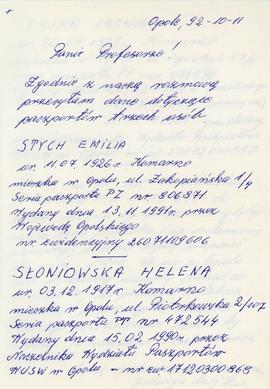 Opole, 92-10-11
Panie Profesorze!
Zgodnie z naszą rozmową
przesyłam dane dotyczące
paszportów trzech osób
STYCH EMILIA
ur. 11.07.1926 r. Komarno
mieszka w Opolu, ul. Zakopiańska 1/4
Seria paszportu PZ nr 806871
Wydany dnia 13.11.1991r. przez
Wojewodę Opolskiego
nr ewidencyjny 26071109606
SŁONIOWSKA HELENA
ur. 03.12.1917r. Komarno
mieszka w Opolu, ul. Piotrkowska
Seria paszportu nr 472544
Wydany dnia 15.02.1990r. przez
Naczelnika Wydziału Paszportów
WUSW w Opolu - nr ew 17120300868